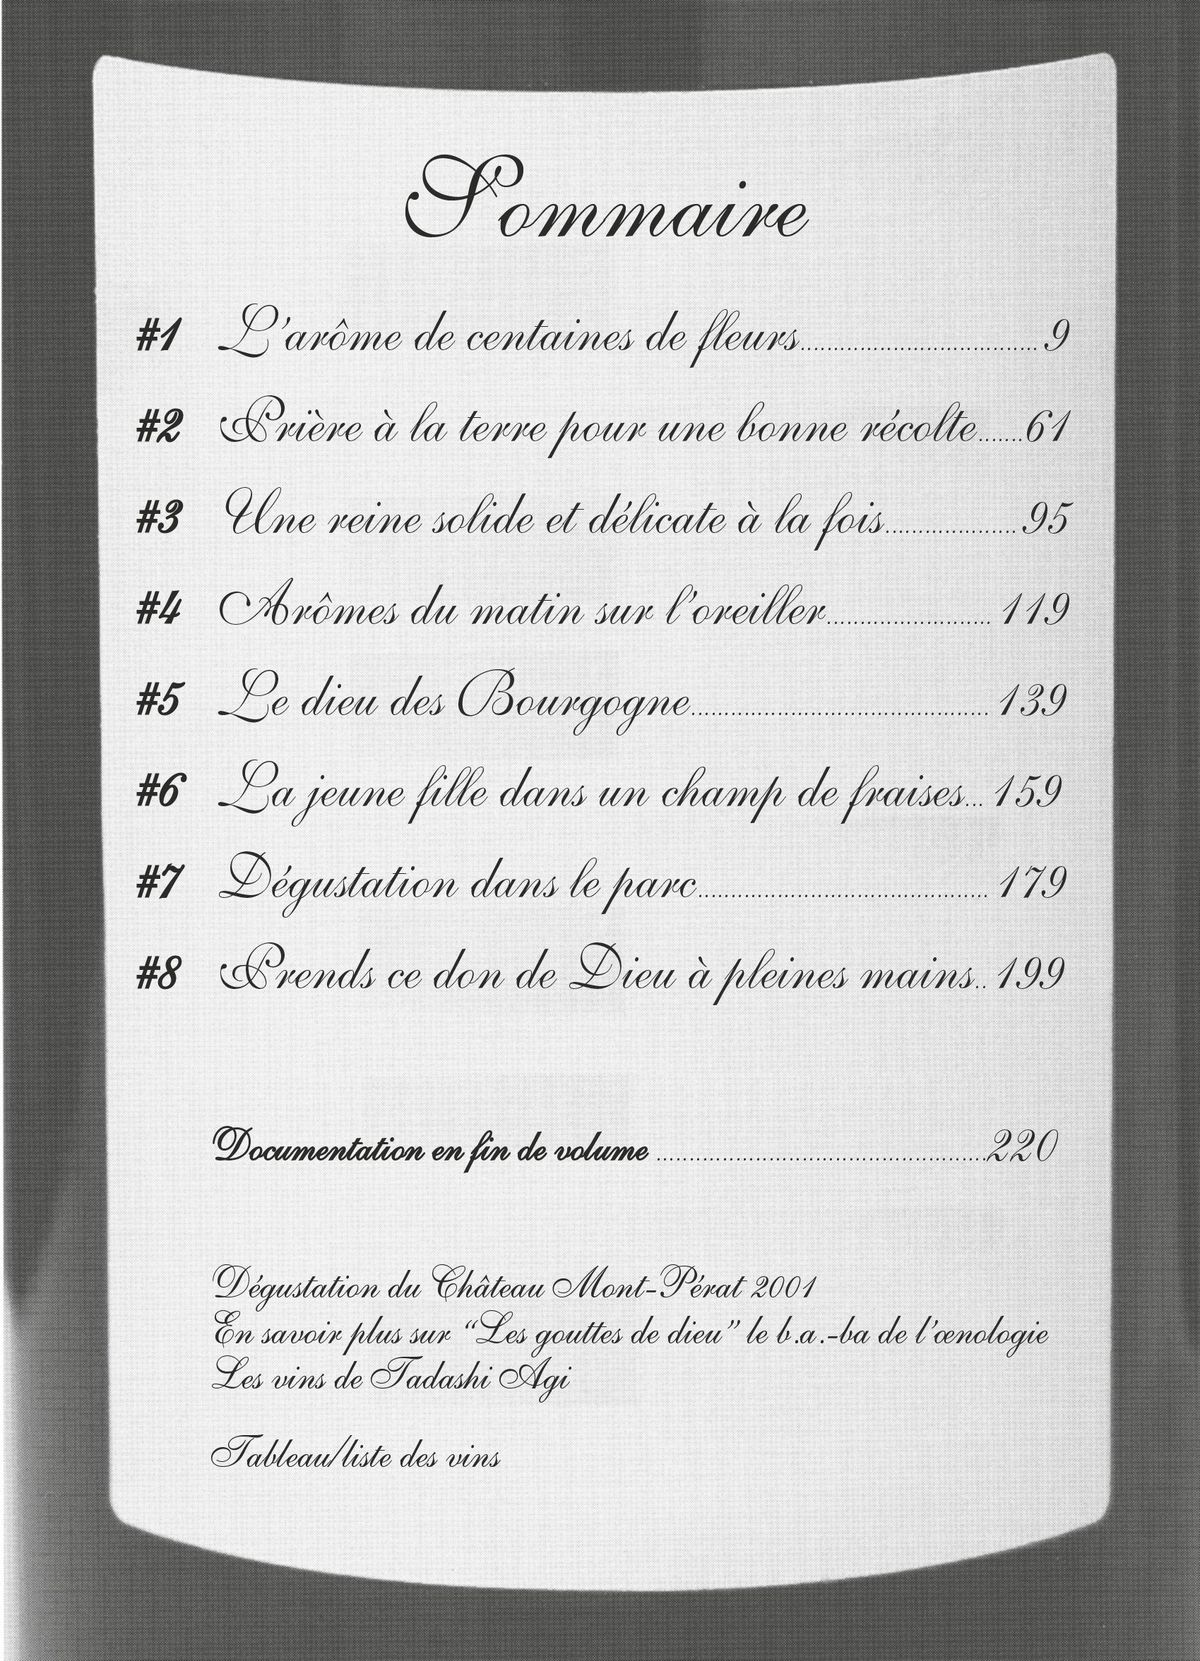 Sommaire
#1 L'arôme de centaines de fleurs 9
#2 Prière à la terre pour une bonne récolte 61
#3 Une reine solide et délicate à la fois 95
#4 Arômes du matin sur l'oreiller 119
#5 Le dieu des Bourgogne 139
#6 La jeune fille dans un champ de fraises 159
#7 Dégustation dans le parc 179
#8 Prends ce don de Dieu à pleines mains 199
Documentation en fin de volume 220
Dégustation du Château Mont-Pérat 2001
En savoir plus sur “Les gouttes de dieu” le b.a.-ba de l'œnologie
Les vins de Tadashi Agi
Tableau/liste des vins